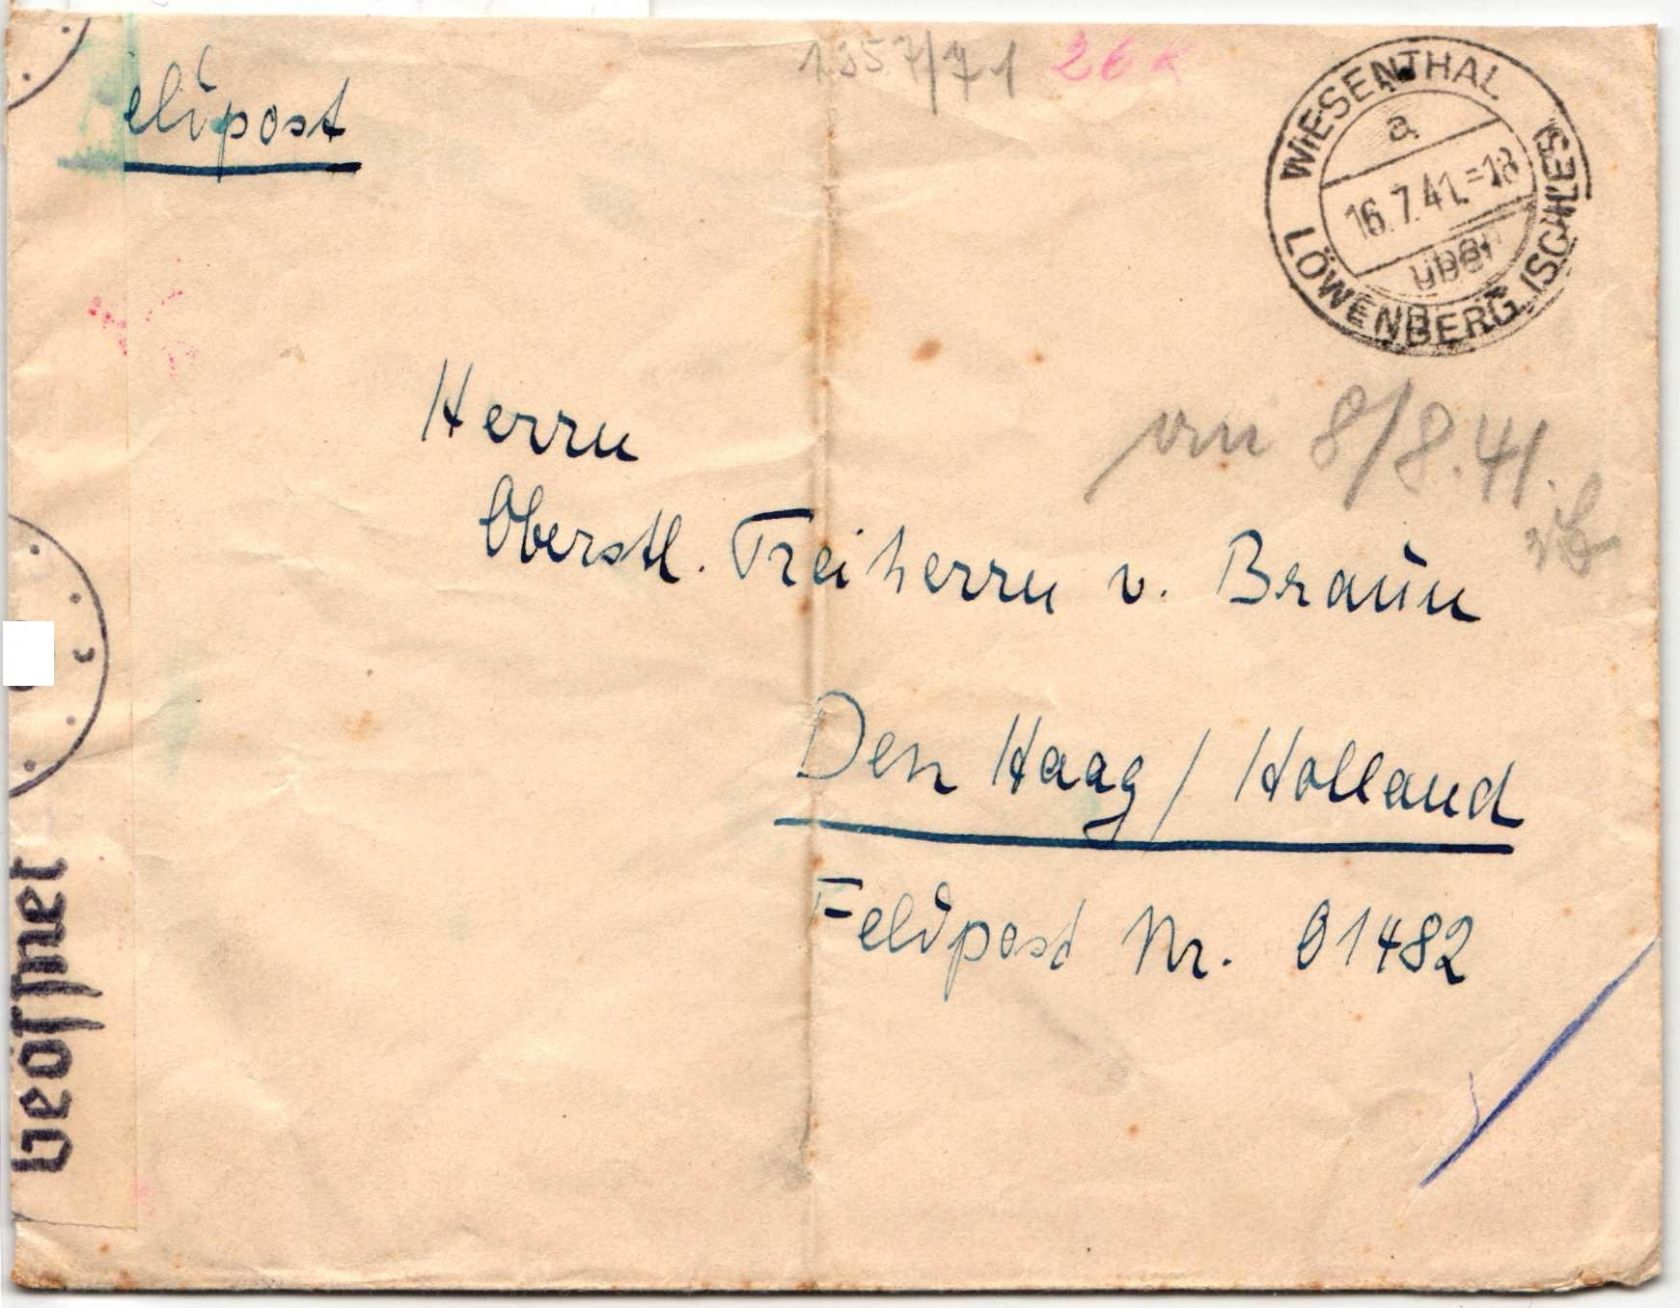 eldpost
1357/71 26 K
WIESENTHAL
a
16.7.41.-18
über
LÖWENBERG (SCHLES)
Herrn
8/8.41.
Oberstl. Freiherrn v. Braun
Den Haag / Holland
Feldpost Nr. 01482
Geöffnet